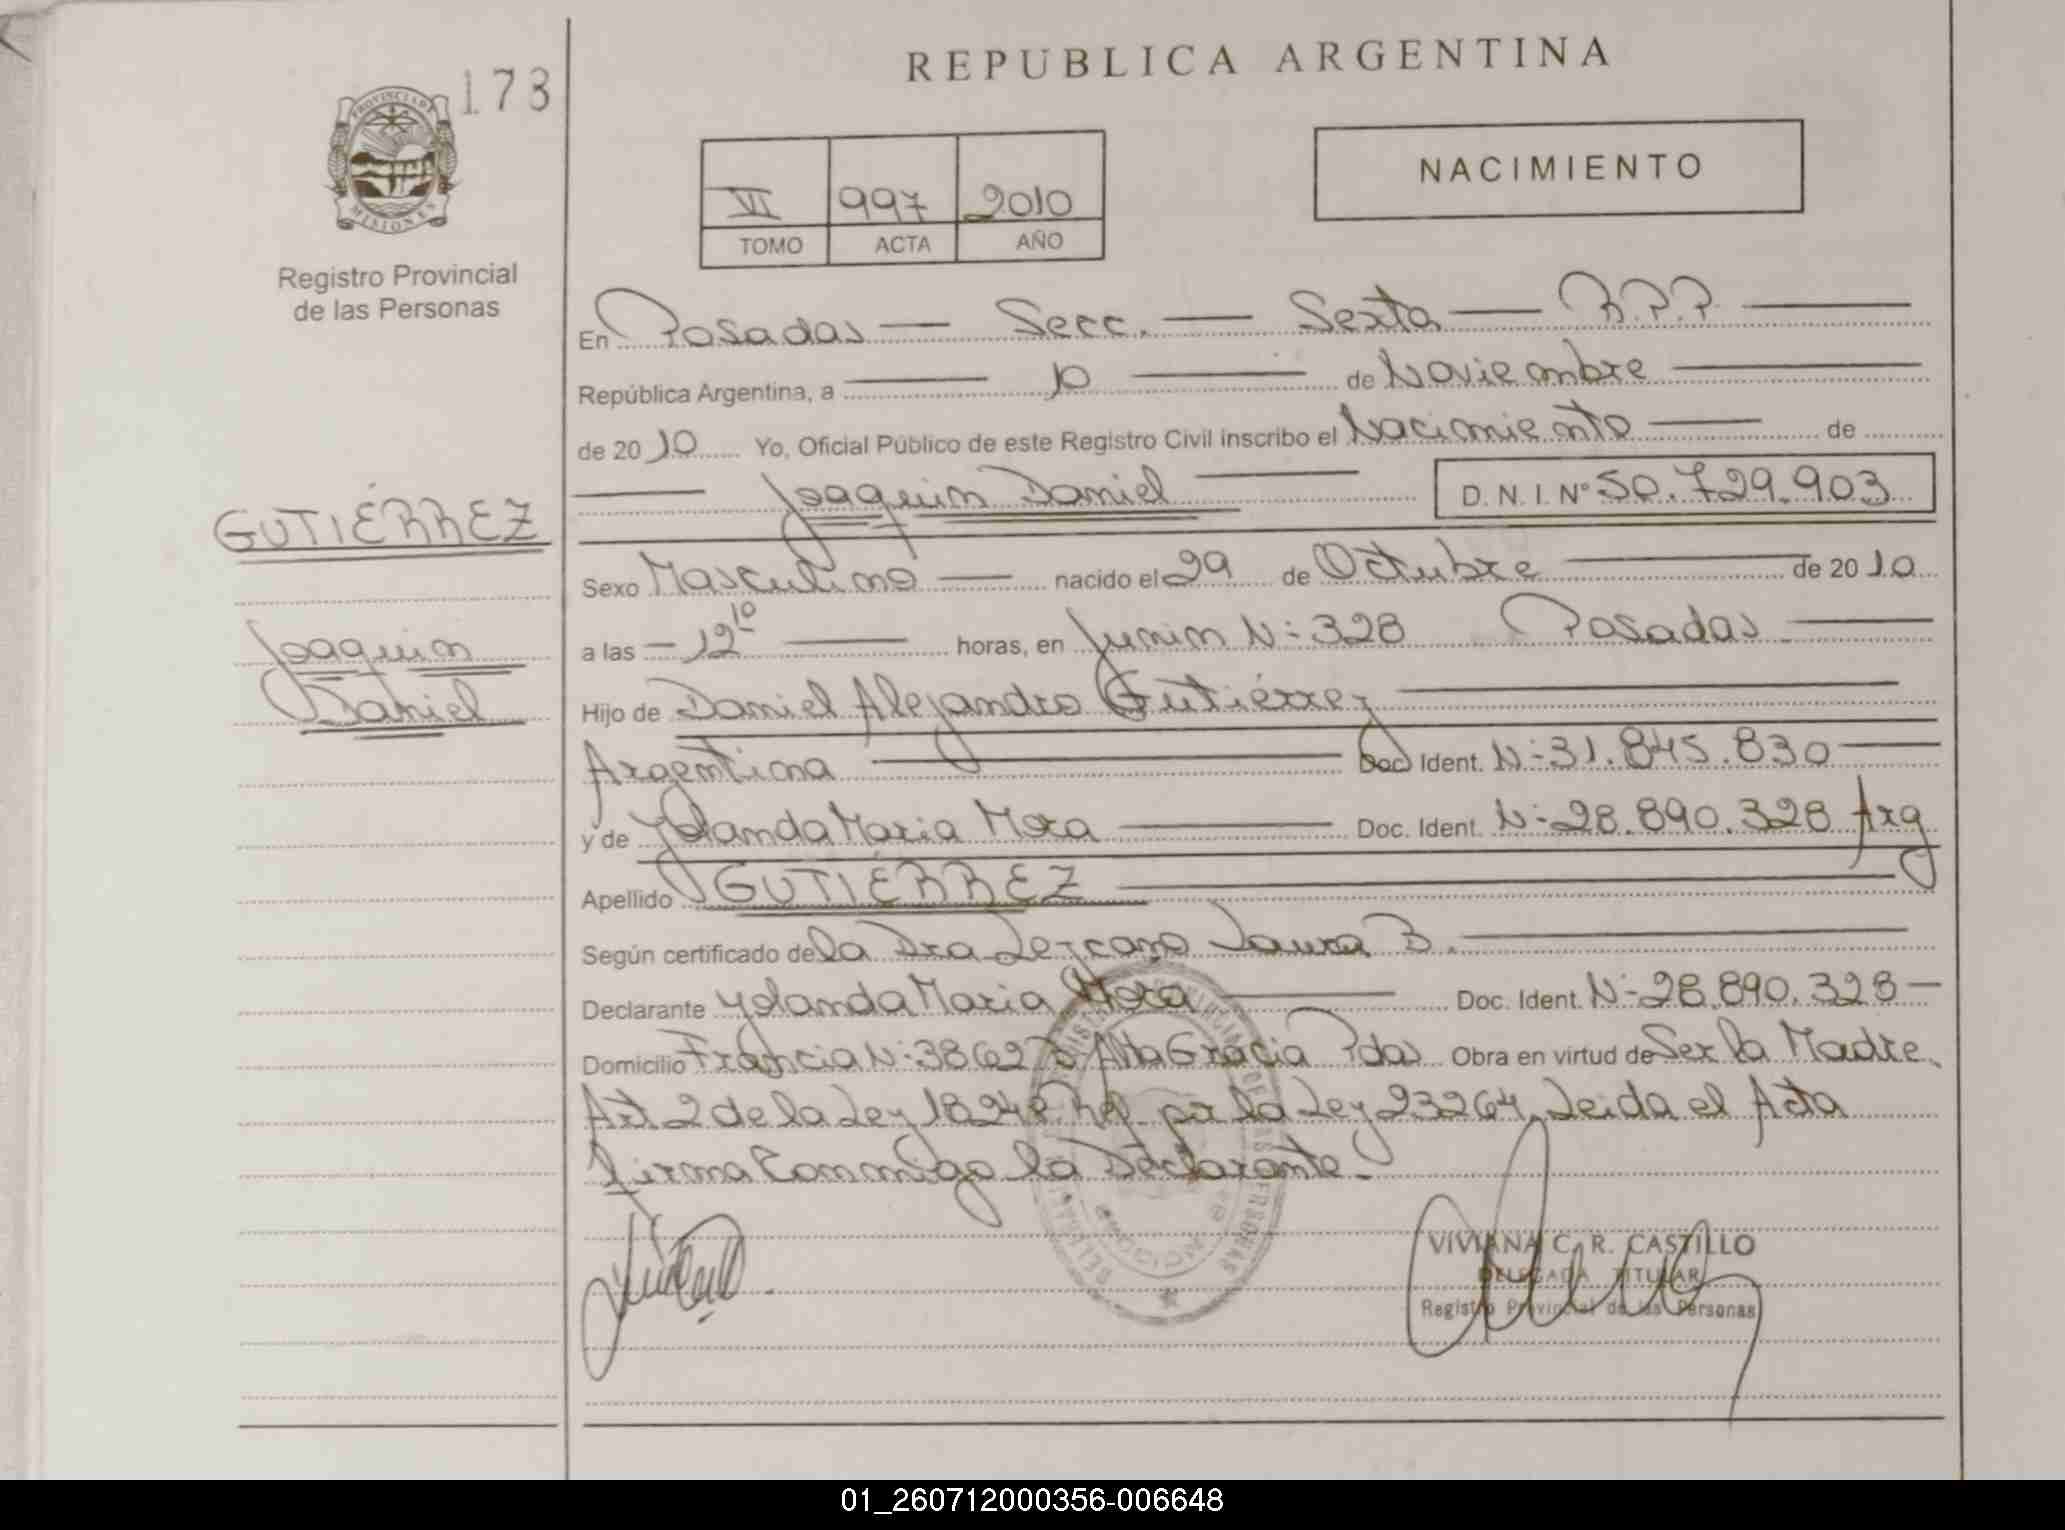 REPUBLICA ARGENTINA
173
PROVINCIA DE
MISIONES
Registro Provincial
de las Personas
VI 997 2010
TOMO ACTA AÑO
NACIMIENTO
En Posadas — Secc. — Sexta — R.P.P.
República Argentina, a 10 de Noviembre
de 2010 Yo, Oficial Público de este Registro Civil inscribo el Nacimiento de
Joaquin Daniel D.N.I. Nº 50.729.903
GUTIÉRREZ
Joaquin
Daniel
Sexo Masculino nacido el 29 de Octubre de 2010
a las 12 10 horas, en Junin Nº 328 Posadas
Hijo de Daniel Alejandro Gutiérrez
Argentina Doc. Ident. Nº 31.845.830
y de Yolanda Maria Mora Doc. Ident. Nº 28.890.328 Arg
Apellido GUTIÉRREZ
Según certificado de la Dra Lezcano Laura B.
Declarante Yolanda Maria Mora Doc. Ident. Nº 28.890.328
Domicilio Francia Nº 3862 Alta Gracia Pdas Obra en virtud de Ser la Madre
Art 2 de la Ley 18248 por la Ley 23264. Leida el Acta
firma Conmigo la Declarante.
VIVIANA C. R. CASTILLO
DELEGADA TITULAR
Registro Provincial de las Personas
01_260712000356-006648